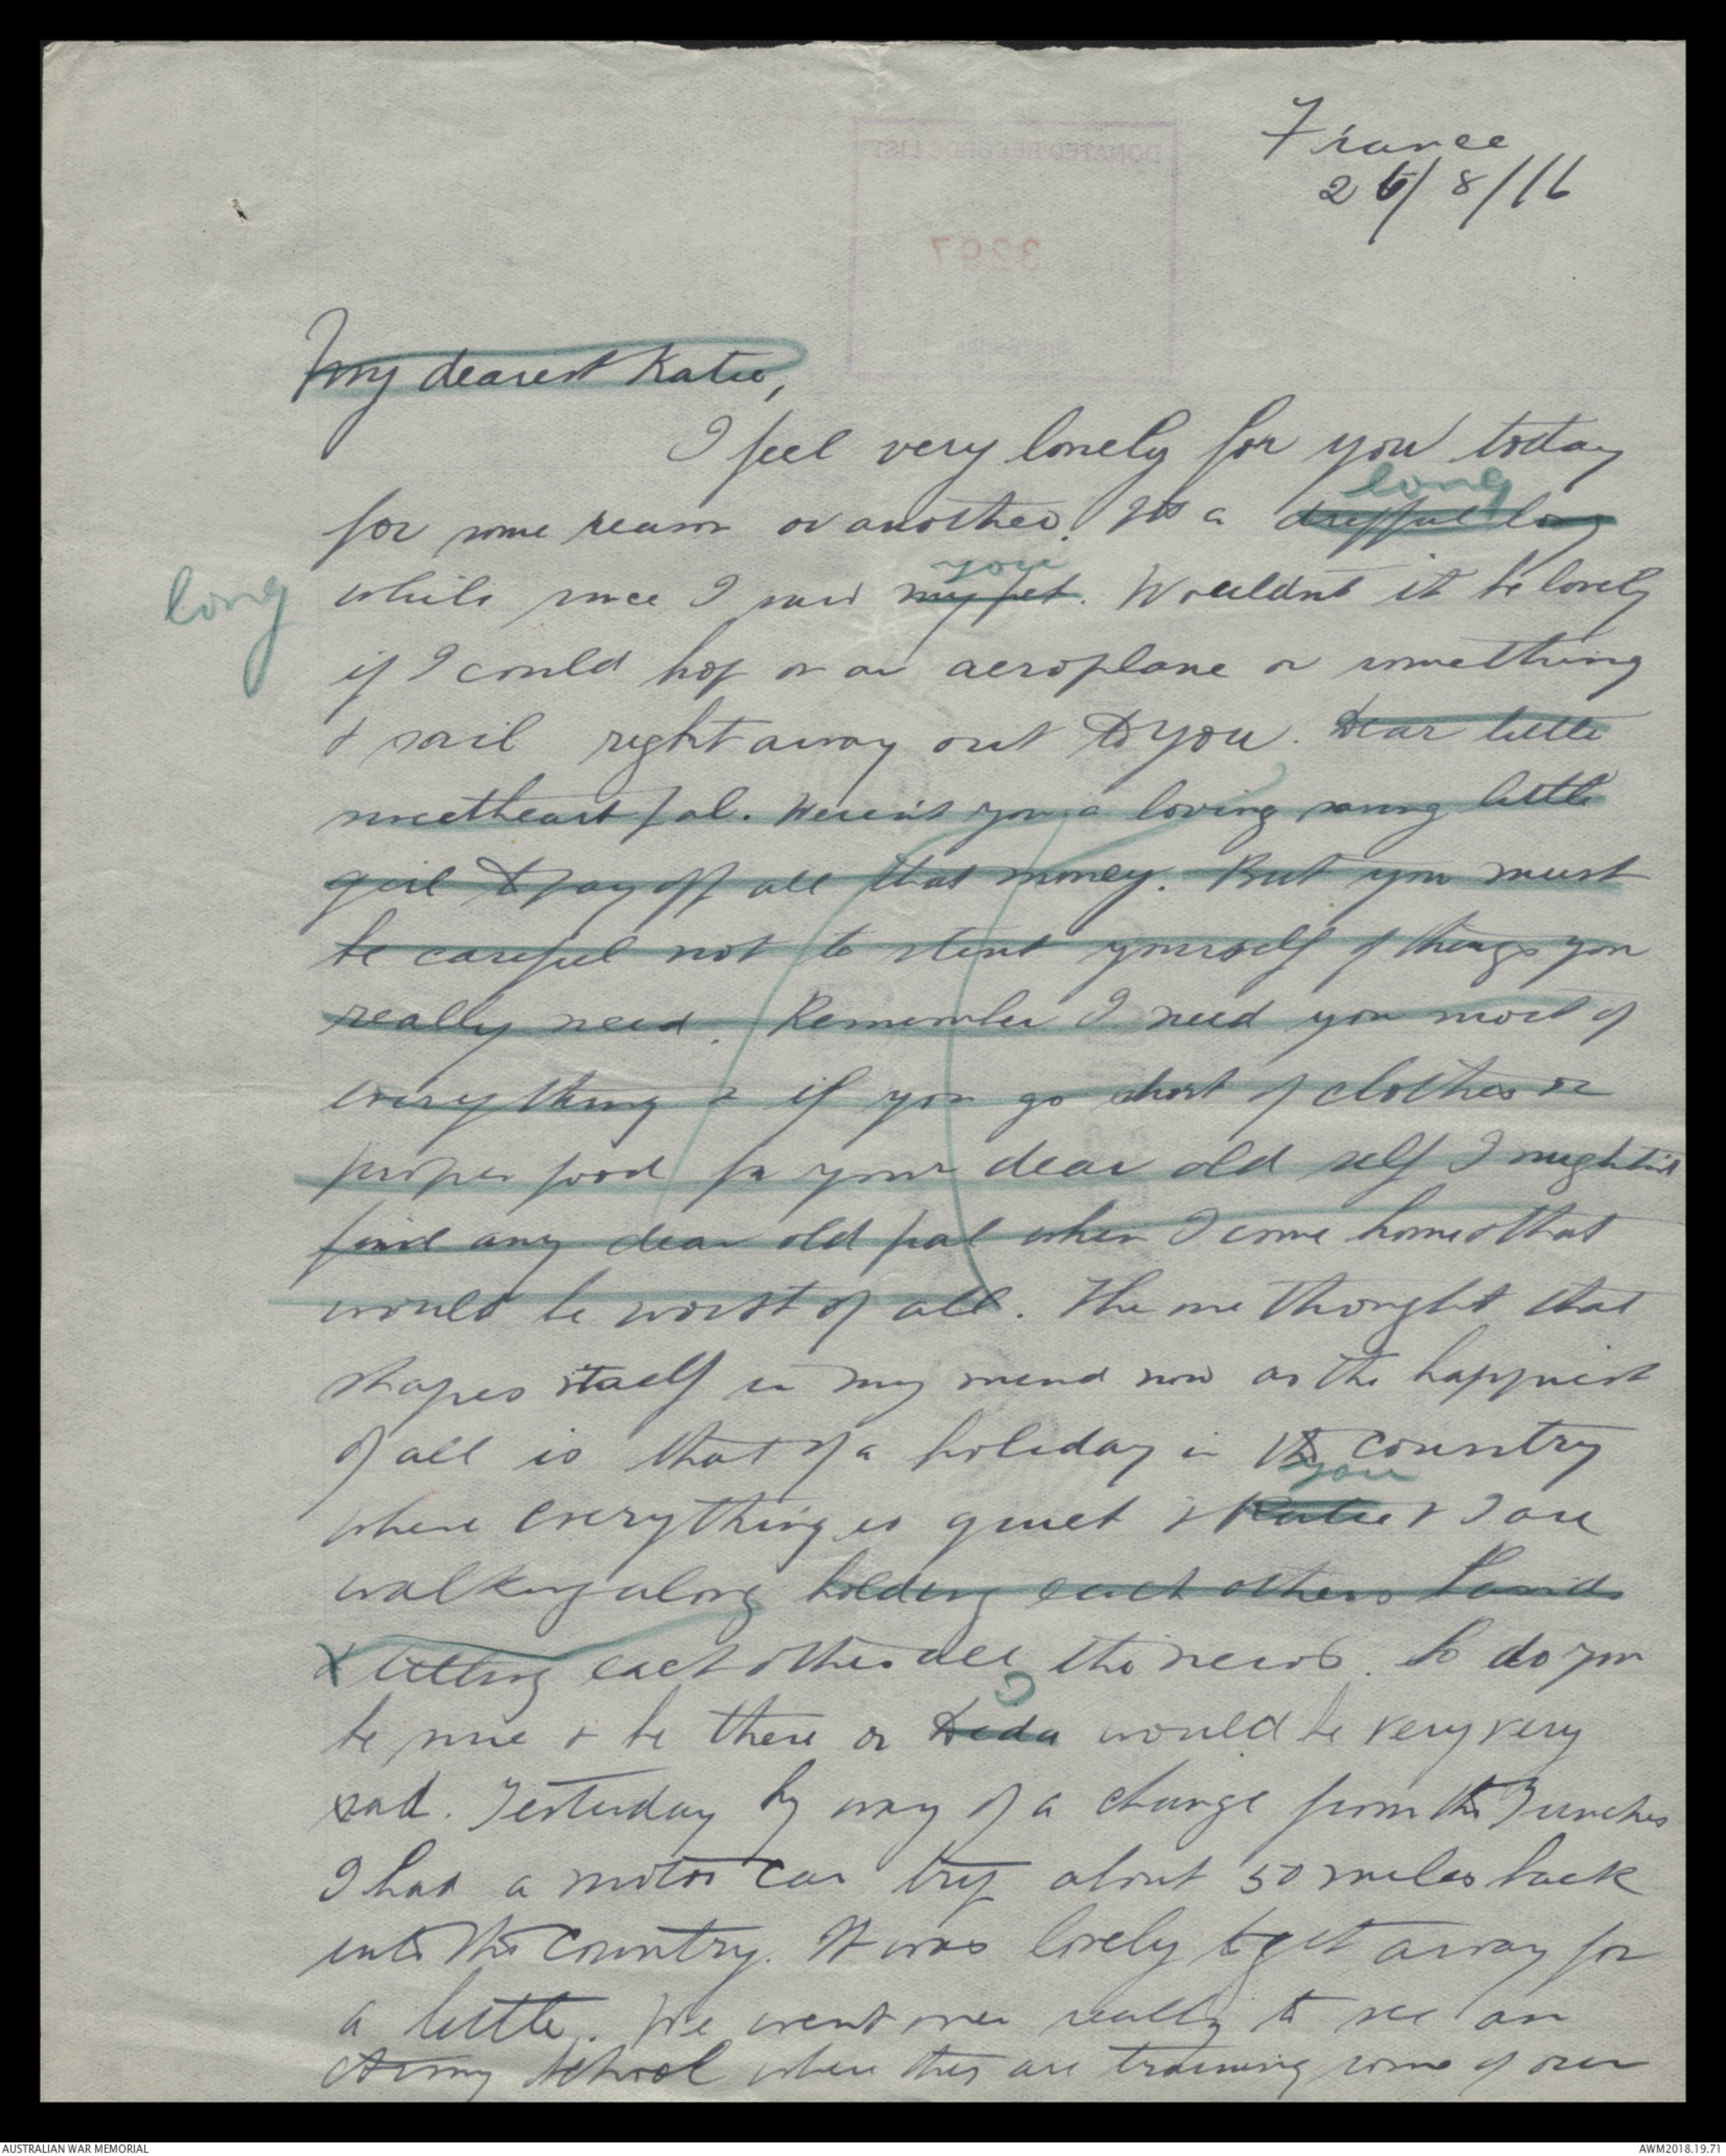 France
26/8/16
DONATED RECORDS LIST
3297
My dearest Katie,
I feel very lonely for you today
long
for some reason or another. Its a dreffful long
you
long
while since I saw my pet. Wouldnt it be lovely
if I could hop on an aeroplane or something
& sail right away out to you. Dear little
sweetheart pal. Weren't you a loving saving little
girl to pay off all that money. But you must
be careful not to stint yourself of things you
really need. Remember I need you most of
everything & if you go short of clothes or
proper food for your dear old self I mightnt
find any dear old pal when I come home & that
would be worst of all. The one thought that
shapes itself in my mind now as the happiest
of all is that of a holiday in the country
you
where everything is quiet & Katie & I are
walking along holding each others hands
& telling each other all the news. So do you
be sure & be there or Dida would be very very
sad. Yesterday by way of a change from the Trenches
I had a motor car trip about 50 miles back
into the country. It was lovely to get away for
a little. We went over really to see an
Army School where they are training some of our
AUSTRALIAN WAR MEMORIAL
AWM2018.19.71